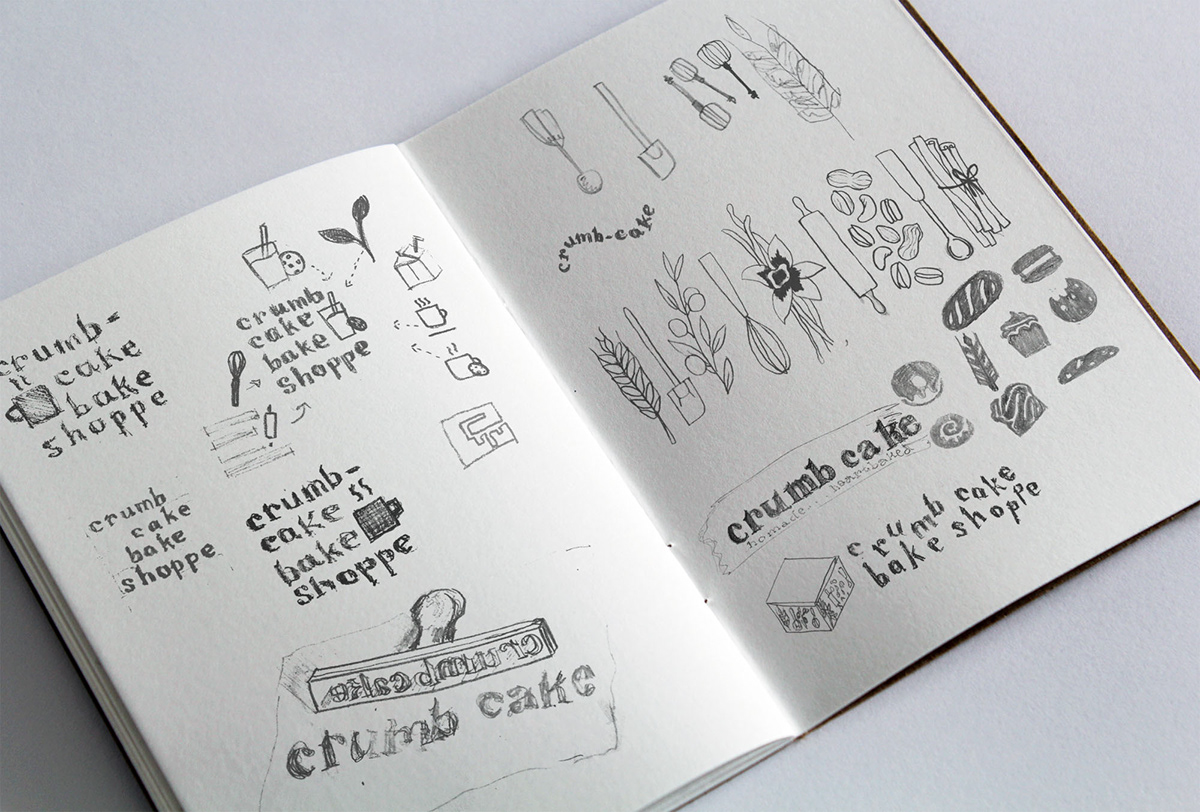 crumb-
cake
bake
shoppe
crumb
cake
bake
shoppe
crumb
cake
bake
shoppe
crumb-
cake
bake
shoppe
crumb cake
crumb cake
crumb-cake
crumb cake
homade...
crumb cake
bake shoppe